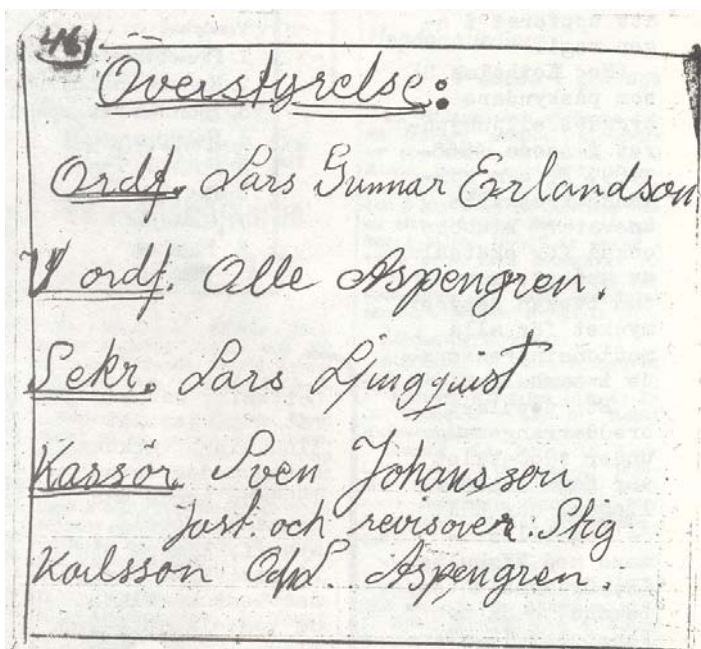 46)
Överstyrelse:
Ordf. Lars Gunnar Erlandson
V ordf. Olle Aspengren.
Sekr. Lars Ljungquist
Kassör. Sven Johansson
Just. och revisorer: Stig
Karlsson Aspengren.